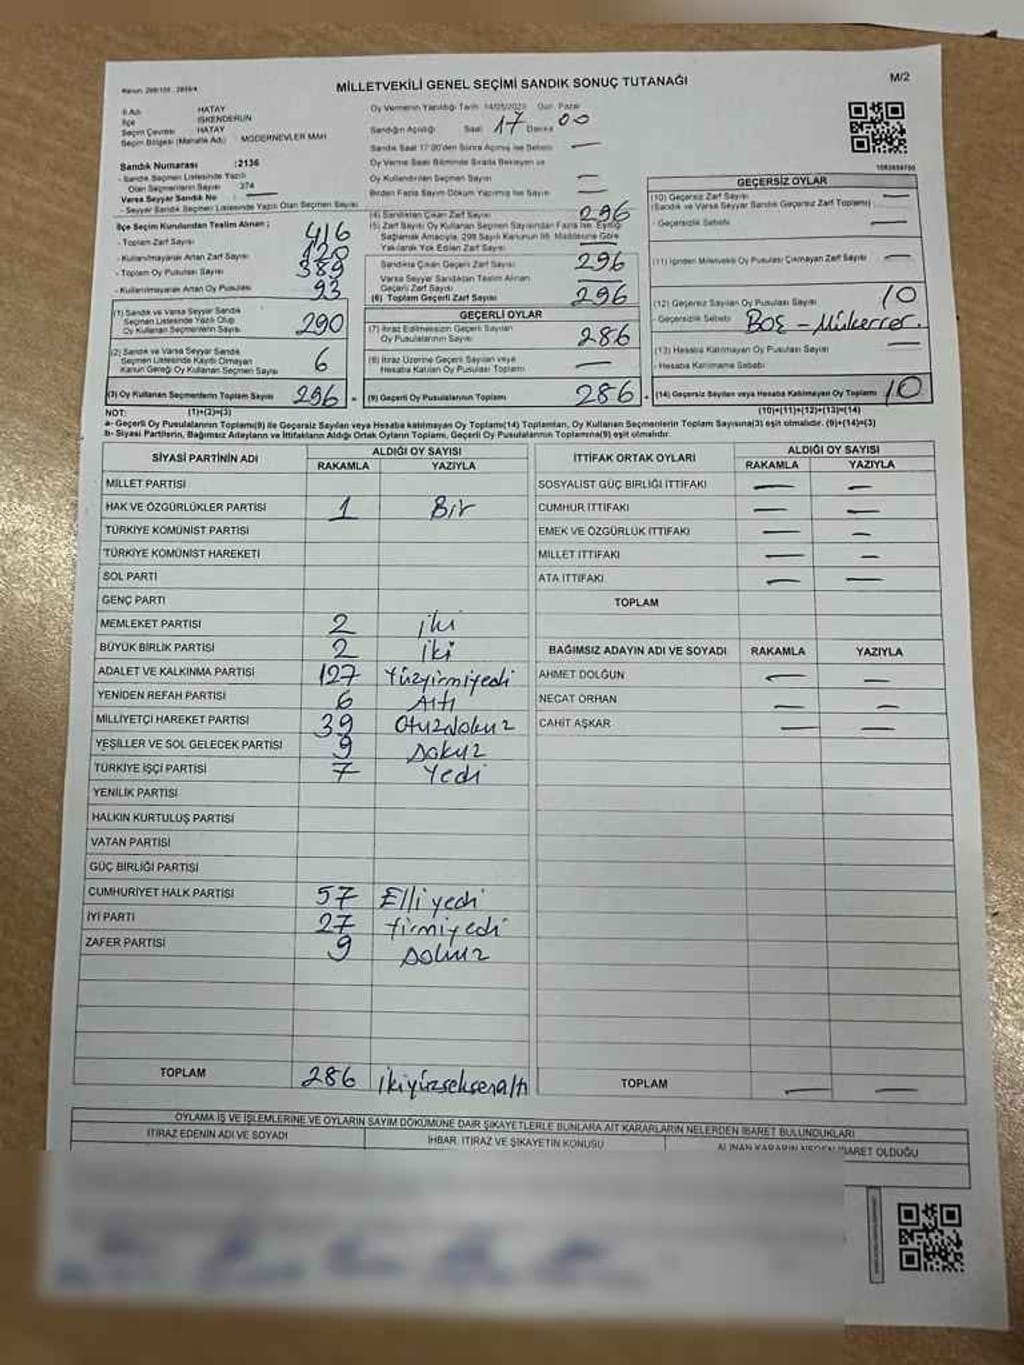 MİLLETVEKİLİ GENEL SEÇİMİ SANDIK SONUÇ TUTANAĞI
M/2
İl Adı HATAY
İlçe İSKENDERUN
Seçim Çevresi HATAY
Seçim Bölgesi (Mahalle Adı) MODERNEVLER MAH
Sandık Numarası :2136
- Sandık Seçmen Listesinde Yazılı
Olan Seçmenlerin Sayısı 374
Varsa Seyyar Sandık No
- Seyyar Sandık Seçmen Listesinde Yazılı Olan Seçmen Sayısı
Oy Vermenin Yapıldığı Tarih 14/05/2023 Gün Pazar
Sandığın Açıldığı Saat 17 Dakika 00
Sandık Saat 17:00'den Sonra Açılmış İse Sebebi —
Oy Verme Saati Bitiminde Sırada Bekleyen ve
Oy Kullandırılan Seçmen Sayısı —
Birden Fazla Sayım Döküm Yapılmış İse Sayısı —
İlçe Seçim Kurulundan Teslim Alınan ;
- Toplam Zarf Sayısı 416
- Kullanılmayarak Artan Zarf Sayısı 120
- Toplam Oy Pusulası Sayısı 389
- Kullanılmayarak Artan Oy Pusulası 93
(1) Sandık ve Varsa Seyyar Sandık
Seçmen Listesinde Yazılı Olup
Oy Kullanan Seçmenlerin Sayısı 290
(2) Sandık ve Varsa Seyyar Sandık
Seçmen Listesinde Kayıtlı Olmayan
Kanun Gereği Oy Kullanan Seçmen Sayısı 6
(3) Oy Kullanan Seçmenlerin Toplam Sayısı 296
(4) Sandıktan Çıkan Zarf Sayısı 296
(5) Zarf Sayısı Oy Kullanan Seçmen Sayısından Fazla İse, Eşitliği
Sağlamak Amacıyla, 298 Sayılı Kanunun 98. Maddesine Göre
Yakılarak Yok Edilen Zarf Sayısı
Sandıkta Çıkan Geçerli Zarf Sayısı 296
Varsa Seyyar Sandıktan Teslim Alınan
Geçerli Zarf Sayısı —
(6) Toplam Geçerli Zarf Sayısı 296
GEÇERLİ OYLAR
(7) İtiraz Edilmeksizin Geçerli Sayılan
Oy Pusulalarının Sayısı 286
(8) İtiraz Üzerine Geçerli Sayılan veya
Hesaba Katılan Oy Pusulası Toplamı —
(9) Geçerli Oy Pusulalarının Toplamı 286
GEÇERSİZ OYLAR
(10) Geçersiz Zarf Sayısı —
(Sandık ve Varsa Seyyar Sandık Geçersiz Zarf Toplamı)
- Geçersizlik Sebebi —
(11) İçinden Milletvekili Oy Pusulası Çıkmayan Zarf Sayısı —
(12) Geçersiz Sayılan Oy Pusulası Sayısı 10
- Geçersizlik Sebebi BOŞ - Mükerrer.
(13) Hesaba Katılmayan Oy Pusulası Sayısı —
- Hesaba Katılmama Sebebi
(14) Geçersiz Sayılan veya Hesaba Katılmayan Oy Toplamı 10
NOT: (1)+(2)=(3) (10)+(11)+(12)+(13)=(14)
a- Geçerli Oy Pusulalarının Toplamı(9) ile Geçersiz Sayılan veya Hesaba katılmayan Oy Toplamı(14) Toplamları, Oy Kullanan Seçmenlerin Toplam Sayısına(3) eşit olmalıdır. (9)+(14)=(3)
b- Siyasi Partilerin, Bağımsız Adayların ve İttifakların Aldığı Ortak Oyların Toplamı, Geçerli Oy Pusulalarının Toplamına(9) eşit olmalıdır.
SİYASİ PARTİNİN ADI ALDIĞI OY SAYISI
RAKAMLA YAZIYLA
MİLLET PARTİSİ
HAK VE ÖZGÜRLÜKLER PARTİSİ 1 Bir
TÜRKİYE KOMÜNİST PARTİSİ
TÜRKİYE KOMÜNİST HAREKETİ
SOL PARTİ
GENÇ PARTİ
MEMLEKET PARTİSİ 2 iki
BÜYÜK BİRLİK PARTİSİ 2 iki
ADALET VE KALKINMA PARTİSİ 127 Yüzyirmiyedi
YENİDEN REFAH PARTİSİ 6 Altı
MİLLİYETÇİ HAREKET PARTİSİ 39 Otuzdokuz
YEŞİLLER VE SOL GELECEK PARTİSİ 9 Dokuz
TÜRKİYE İŞÇİ PARTİSİ 7 Yedi
YENİLİK PARTİSİ
HALKIN KURTULUŞ PARTİSİ
VATAN PARTİSİ
GÜÇ BİRLİĞİ PARTİSİ
CUMHURİYET HALK PARTİSİ 57 Elli yedi
İYİ PARTİ 27 Yirmiyedi
ZAFER PARTİSİ 9 Dokuz
TOPLAM 286 ikiyüzseksenaltı
İTTİFAK ORTAK OYLARI ALDIĞI OY SAYISI
RAKAMLA YAZIYLA
SOSYALİST GÜÇ BİRLİĞİ İTTİFAKI — —
CUMHUR İTTİFAKI — —
EMEK VE ÖZGÜRLÜK İTTİFAKI — —
MİLLET İTTİFAKI — —
ATA İTTİFAKI — —
TOPLAM
BAĞIMSIZ ADAYIN ADI VE SOYADI RAKAMLA YAZIYLA
AHMET DOLĞUN — —
NECAT ORHAN — —
CAHİT AŞKAR — —
TOPLAM — —
OYLAMA İŞ VE İŞLEMLERİNE VE OYLARIN SAYIM DÖKÜMÜNE DAİR ŞİKAYETLERLE BUNLARA AİT KARARLARIN NELERDEN İBARET BULUNDUKLARI
İTİRAZ EDENİN ADI VE SOYADI İHBAR, İTİRAZ VE ŞİKAYETİN KONUSU ALINAN KARARIN NEDEN İBARET OLDUĞU